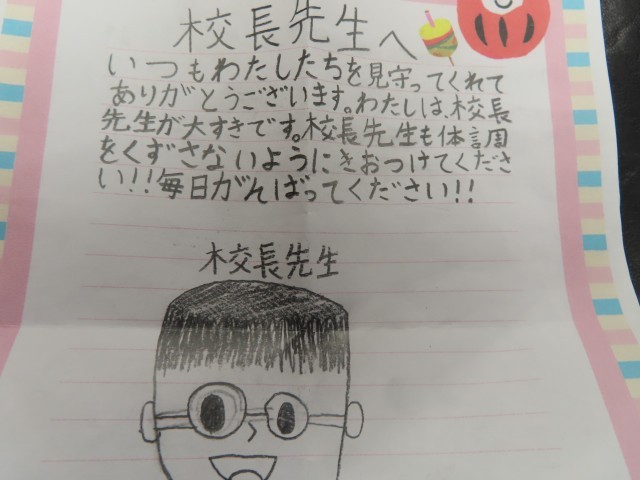 校長先生へ
いつもわたしたちを見守ってくれて
ありがとうございます。わたしは、校長
先生が大すきです。校長先生も体調
をくずさないようにきおつけてくださ
い!!毎日がんばってください!!
校長先生